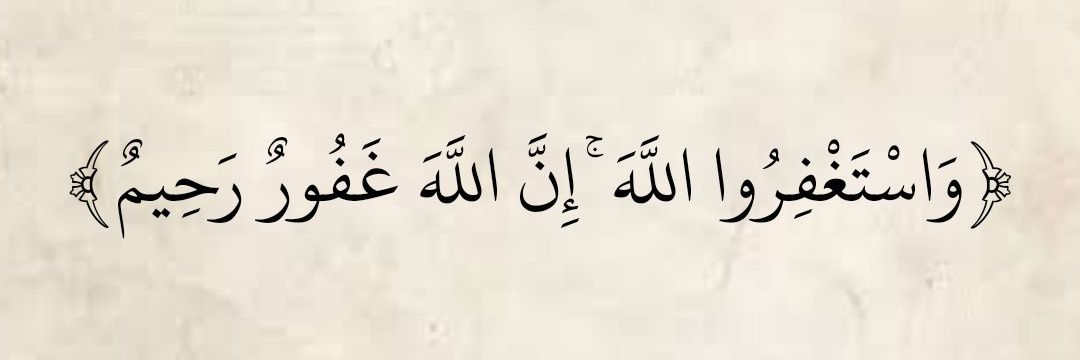 ﴿وَاسْتَغْفِرُوا اللَّهَ ۚ إِنَّ اللَّهَ غَفُورٌ رَحِيمٌ﴾